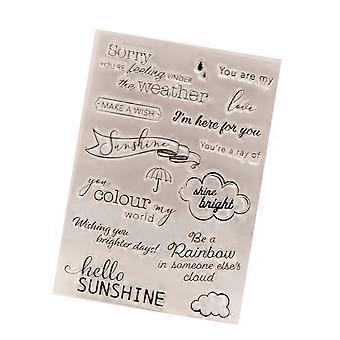 Sorry
YOU'RE feeling UNDER
the weather
You are my
love
MAKE A WISH
I'm here for you
Sunshine
You're a ray of
you
colour my
world
shine
bright
Wishing you
brighter days!
Be a
Rainbow
in someone else's
cloud
hello
SUNSHINE